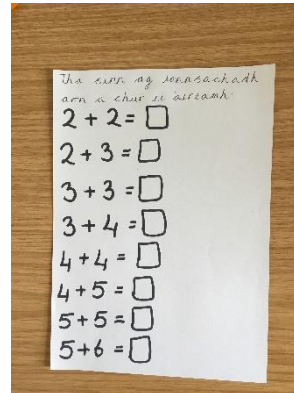 Tha sinn ag ionnsachadh
ann a chur ri àireamh.
2 + 2 = □
2 + 3 = □
3 + 3 = □
3 + 4 = □
4 + 4 = □
4 + 5 = □
5 + 5 = □
5 + 6 = □